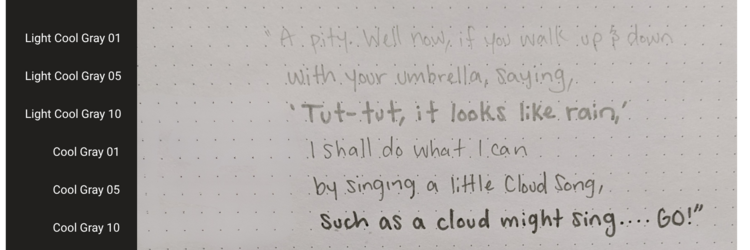 Light Cool Gray 01 "A pity. Well now, if you walk up & down
Light Cool Gray 05 with your umbrella, saying,
Light Cool Gray 10 'Tut-tut, it looks like rain,'
Cool Gray 01 I shall do what I can
Cool Gray 05 by singing a little Cloud Song,
Cool Gray 10 Such as a cloud might sing.... GO!"